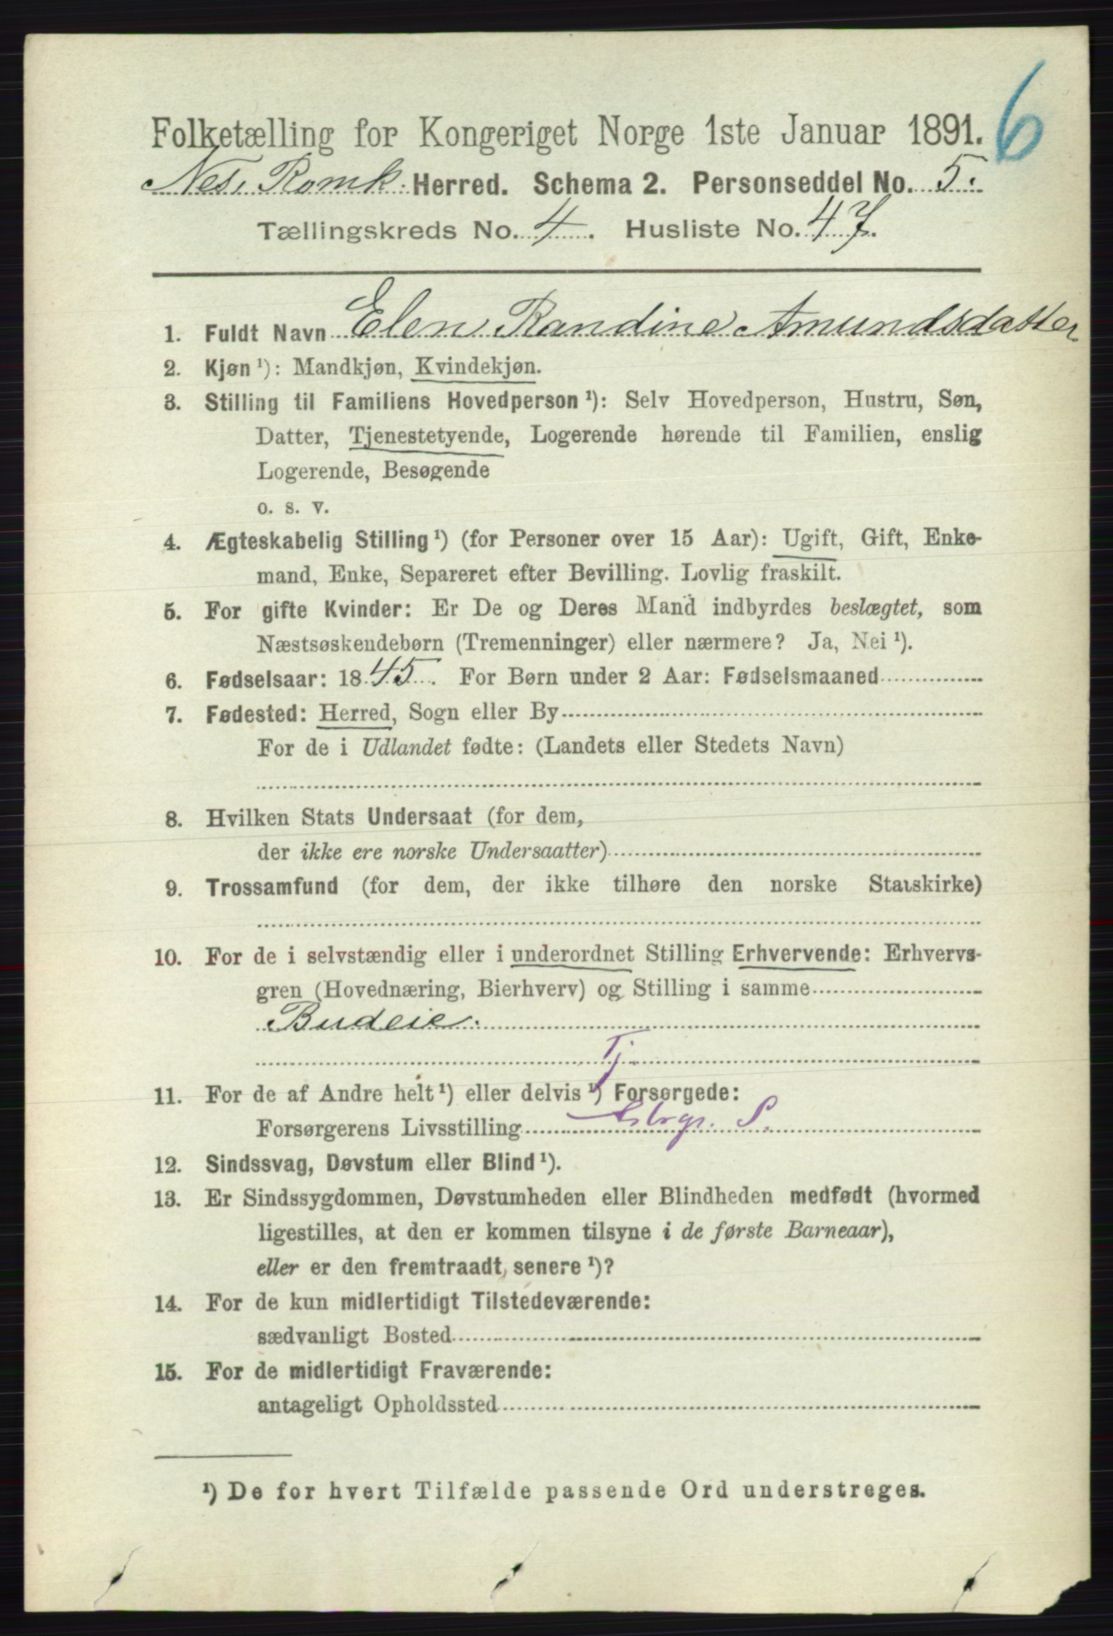 6
Folketælling for Kongeriget Norge 1ste Januar 1891.
Nes, Romk. Herred. Schema 2. Personseddel No. 5.
Tællingskreds No. 4. Husliste No. 47.
1. Fuldt Navn Elen Randine Amundsdatter
2. Kjøn ¹): Mandkjøn, Kvindekjøn.
3. Stilling til Familiens Hovedperson ¹): Selv Hovedperson, Hustru, Søn,
Datter, Tjenestetyende, Logerende hørende til Familien, enslig
Logerende, Besøgende
o. s. v.
4. Ægteskabelig Stilling ¹) (for Personer over 15 Aar): Ugift, Gift, Enke-
mand, Enke, Separeret efter Bevilling. Lovlig fraskilt.
5. For gifte Kvinder: Er De og Deres Mand indbyrdes beslægtet, som
Næstsøskendebørn (Tremenninger) eller nærmere? Ja, Nei ¹).
6. Fødselsaar: 1845. For Børn under 2 Aar: Fødselsmaaned
7. Fødested: Herred, Sogn eller By
For de i Udlandet fødte: (Landets eller Stedets Navn)
8. Hvilken Stats Undersaat (for dem,
der ikke ere norske Undersaatter)
9. Trossamfund (for dem, der ikke tilhøre den norske Statskirke)
10. For de i selvstændig eller i underordnet Stilling Erhvervende: Erhvervs-
gren (Hovednæring, Bierhverv) og Stilling i samme
Budeie.
Tj
11. For de af Andre helt ¹) eller delvis ¹) Forsørgede:
Forsørgerens Livsstilling S.
12. Sindssvag, Døvstum eller Blind ¹).
13. Er Sindssygdommen, Døvstumheden eller Blindheden medfødt (hvormed
ligestilles, at den er kommen tilsyne i de første Barneaar),
eller er den fremtraadt senere ¹)?
14. For de kun midlertidigt Tilstedeværende:
sædvanligt Bosted
15. For de midlertidigt Fraværende:
antageligt Opholdssted
¹) De for hvert Tilfælde passende Ord understreges.